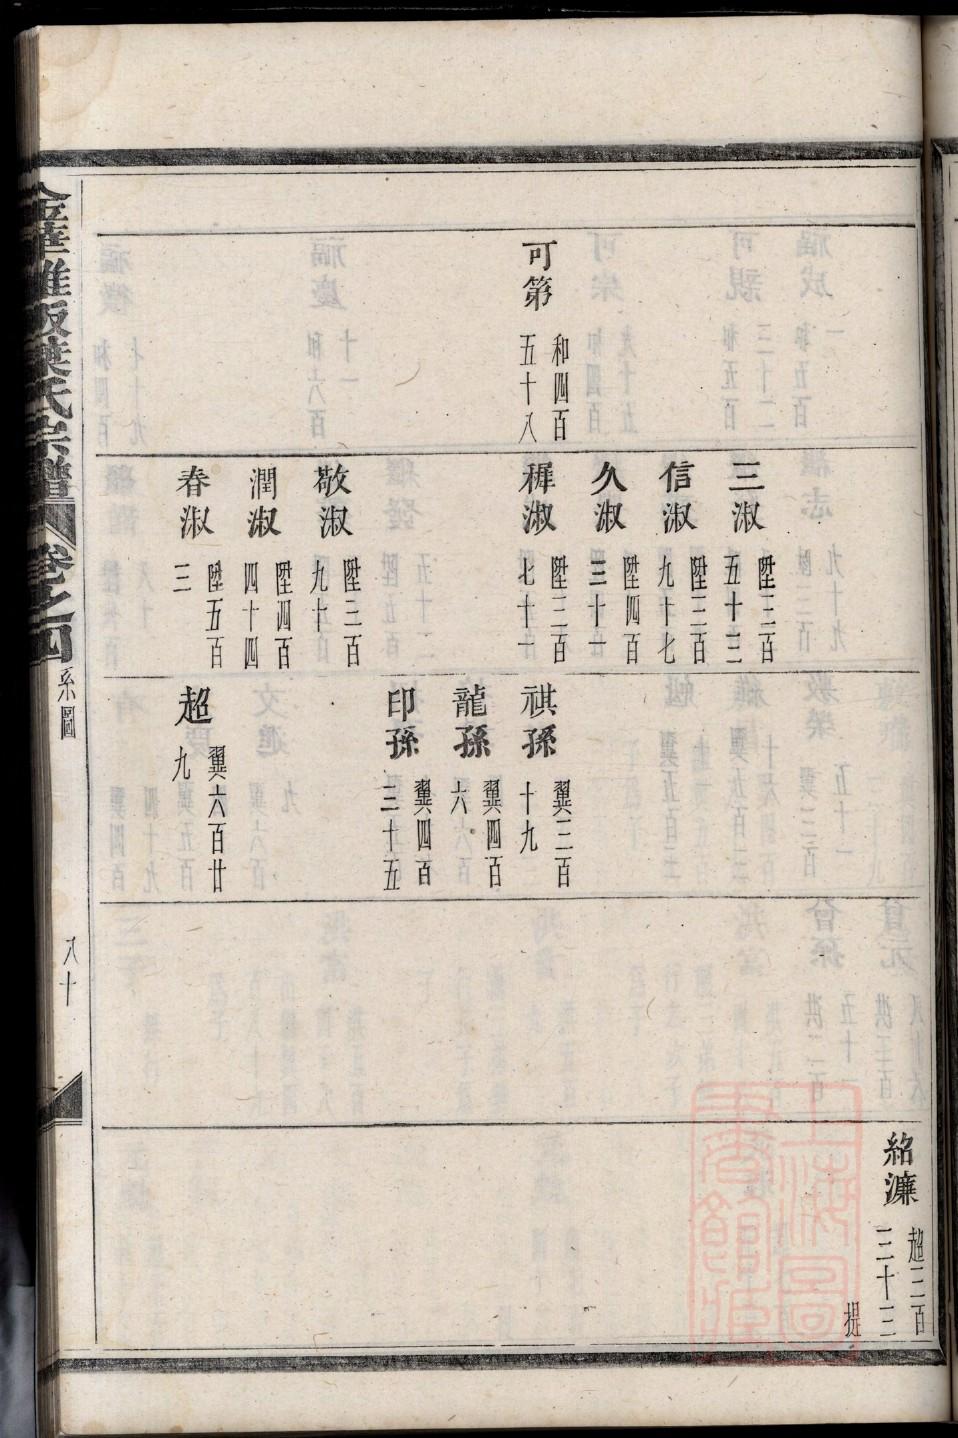 可第 和四百五十八
三淑 陞三百五十三
信淑 陞三百九十七
久淑 陞四百三十一
稺淑 陞三百七十一
敬淑 陞三百九十
潤淑 陞四百四十四
春淑 陞五百三
祺孫 翼三百十九
龍孫 翼四百六
印孫 翼四百三十五
超 翼六百廿九
紹濂 超三百三十三
提
葉氏宗譜 卷之四 系圖 八十
上海圖書館藏